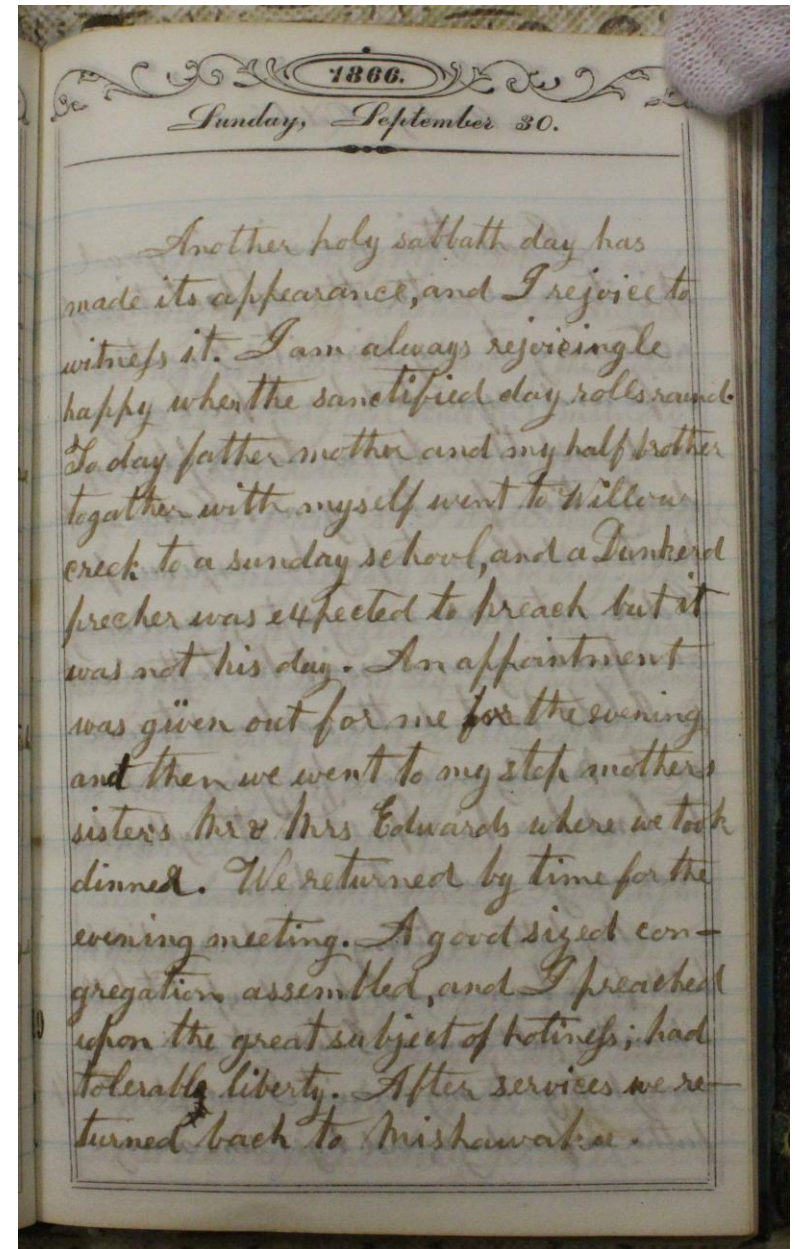 1866.
Sunday, September 30.
Another holy sabbath day has
made its appearance, and I rejoice to
witness it. I am always rejoicingle
happy when the sanctified day rolls round.
To day father mother and my half brother
togather with myself went to Willow
creek to a sunday school, and a Dunkerd
precher was expected to preach but it
was not his day. An appointment
was given out for me for the evening
and then we went to my step mothers
sisters Mr & Mrs Edwards where we took
dinner. We returned by time for the
evening meeting. A good sized con-
gregation assembled, and I preached
upon the great subject of holiness; had
tolerable liberty. After services we re-
turned back to Mishawaka.